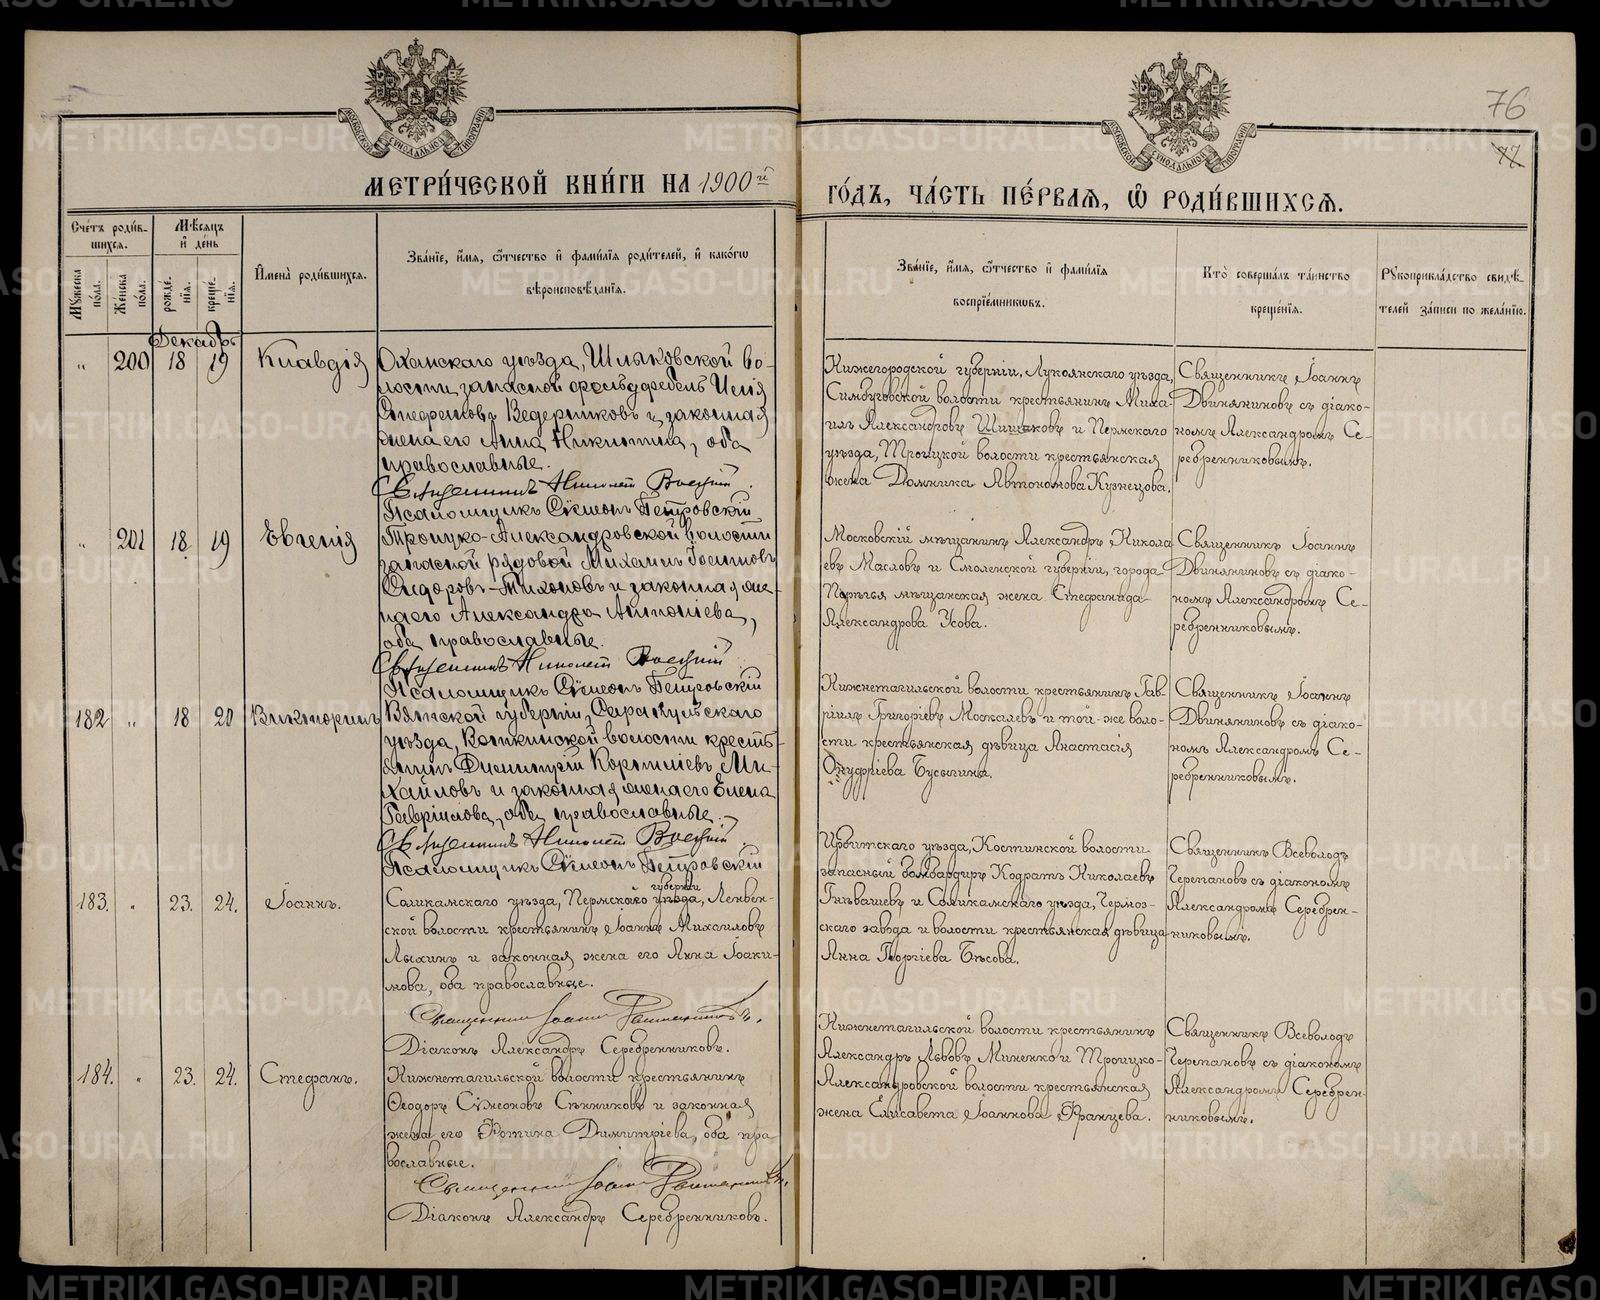 76
77
МОСКОВСКОЙ СѴНОДАЛЬНОЙ ТИПОГРАФІИ
МОСКОВСКОЙ СѴНОДАЛЬНОЙ ТИПОГРАФІИ
МЕТРИ́ЧЕСКОЙ КНИ́ГИ НА 1900й ГО́ДЪ, ЧА́СТЬ ПЕ́РВАѦ, Ѿ РОДИ́ВШИХСѦ.
Сче́тъ роди́в-
шихсѧ.
Мꙋжеска по́ла.
Же́нска по́ла.
Мѣ́сяцъ
и҆ де́нь
рожде́нїѧ.
креще́нїѧ.
И҆мена̀ роди́вшихсѧ.
Зва́нїе, и҆́мѧ, ѻ҆́тчество и҆ фами́лїѧ роди́телей, и҆ како́гѡ
вѣроисповѣ́данїѧ.
Зва́нїе, и҆́мѧ, ѻ҆́тчество и҆ фами́лїѧ
воспрїе́мникѡвъ.
Кто̀ соверша́лъ та́инство
креще́нїѧ.
Рꙋкоприкла́дство свидѣ́-
телей за́писи по жела́нїю.
Декабрь
" 200 18 19 Клавдія
Оханскаго уѣзда, Шлыковской во-
лости запасной фельдфебель Илія
Ведерниковъ и законная
жена его Анна Никитина, оба
православные.
Священникъ
Псаломщикъ Сѷмеонъ Петровскій
Нижегородской губерніи, Лукоянскаго уѣзда,
волости крестьянинъ Миха-
илъ Александровъ Шишаковъ и Пермскаго
уѣзда, Троицкой волости крестьянская
жена Домника Автономова Кузнецова.
Священникъ Іоаннъ
Двиняниновъ съ діако-
номъ Александромъ Се-
ребренниковымъ.
" 201 18 19 Евгенія
Троицко-Александровской волости
запасной рядовой Михаилъ
Сидоровъ-Тихоновъ и законная же-
на его Александра
оба православные.
Священникъ
Псаломщикъ Сѷмеонъ Петровскій
Московскій мѣщанинъ Александръ Никола-
евъ Масловъ и Смоленской губерніи, города
Порѣчья мѣщанская жена Стефанида
Александрова Усова.
Священникъ Іоаннъ
Двиняниновъ съ діако-
номъ Александромъ Се-
ребренниковымъ.
182 " 18 20 Викторинъ
Вятской губерніи, Сарапульскаго
уѣзда, Воткинской волости кресть-
янинъ Димитрій Ми-
хайловъ и законная жена его Елена
Гавріилова, оба православные.
Священникъ
Псаломщикъ Сѷмеонъ Петровскій
Нижнетагильской волости крестьянинъ Гав-
ріилъ Григоріевъ Москалевъ и той-же воло-
сти крестьянская дѣвица Анастасія
Онуфріева Бусыгина.
Священникъ Іоаннъ
Двиняниновъ съ діако-
номъ Александромъ Се-
ребренниковымъ.
183. " 23. 24. Іоаннъ.
губерніи
Соликамскаго уѣзда, Пермскаго уѣзда, Ленвен-
ской волости крестьянинъ Іоаннъ Михаиловъ
Лыхинъ и законная жена его Анна Іоаки-
мова, оба православные.
Священникъ Іоаннъ
Діаконъ Александръ Серебренниковъ.
Ирбитскаго уѣзда, Костинской волости
запасный бомбардиръ Кодратъ Николаевъ
Гнѣвашевъ и Соликамскаго уѣзда, Чермоз-
скаго завода и волости крестьянская дѣвица
Анна Георгіева Бѣсова.
Священникъ Всеволодъ
Черепановъ съ діакономъ
Александромъ Серебрен-
никовымъ.
184. " 23. 24. Стефанъ.
Нижнетагильской волости крестьянинъ
Ѳеодоръ Сѷмеоновъ Сѣнниковъ и законная
жена его Фотина Димитріева, оба пра-
вославные.
Священникъ Іоаннъ
Діаконъ Александръ Серебренниковъ.
Нижнетагильской волости крестьянинъ
Александръ Львовъ Миненко и Троицко-
Александровской волости крестьянская
жена Елисавета Іоаннова Францева.
Священникъ Всеволодъ
Черепановъ съ діакономъ
Александромъ Серебрен-
никовымъ.
METRIKI.GASO-URAL.RU